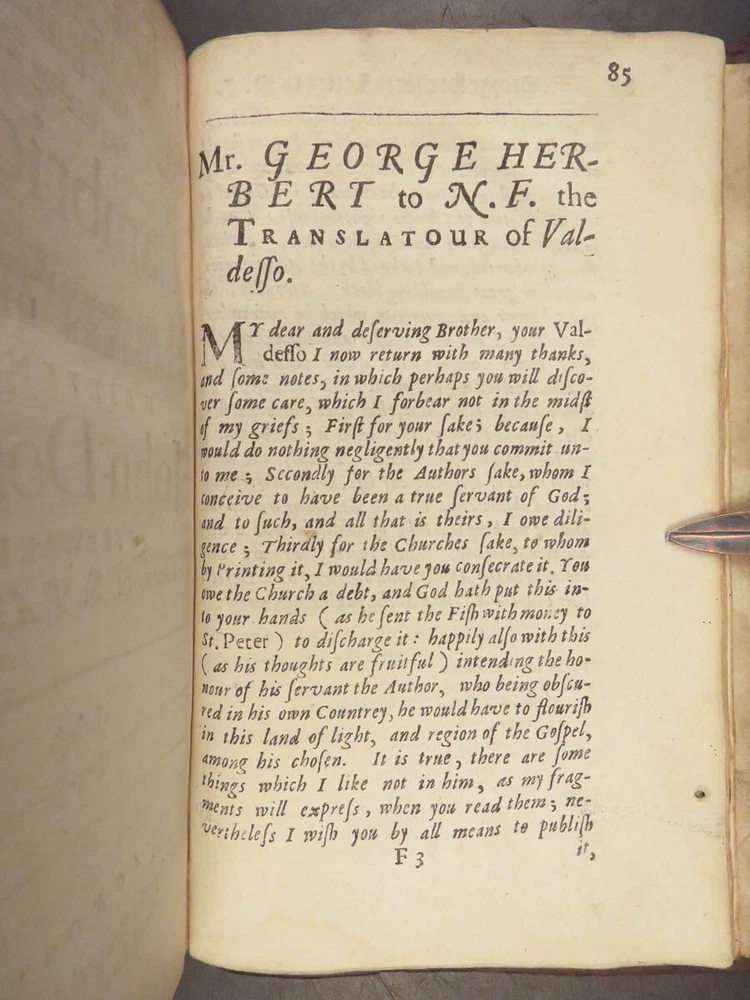 85
Mr. GEORGE HER-
BERT to N. F. the
TRANSLATOUR of Val-
deſſo.
MY dear and deſerving Brother, your Val-
deſſo I now return with many thanks,
and ſome notes, in which perhaps you will diſco-
ver ſome care, which I forbear not in the midſt
of my griefs; Firſt for your ſake; becauſe, I
would do nothing negligently that you commit un-
to me; Secondly for the Authors ſake, whom I
conceive to have been a true ſervant of God;
and to ſuch, and all that is theirs, I owe dili-
gence; Thirdly for the Churches ſake, to whom
by Printing it, I would have you conſecrate it. You
owe the Church a debt, and God hath put this in-
to your hands (as he ſent the Fiſh with money to
St. Peter) to diſcharge it: happily alſo with this
(as his thoughts are fruitful) intending the ho-
nour of his ſervant the Author, who being obſcu-
red in his own Countrey, he would have to flouriſh
in this land of light, and region of the Goſpel,
among his choſen. It is true, there are ſome
things which I like not in him, as my frag-
ments will expreſs, when you read them; ne-
vertheleſs I wiſh you by all means to publiſh
F 3 it,